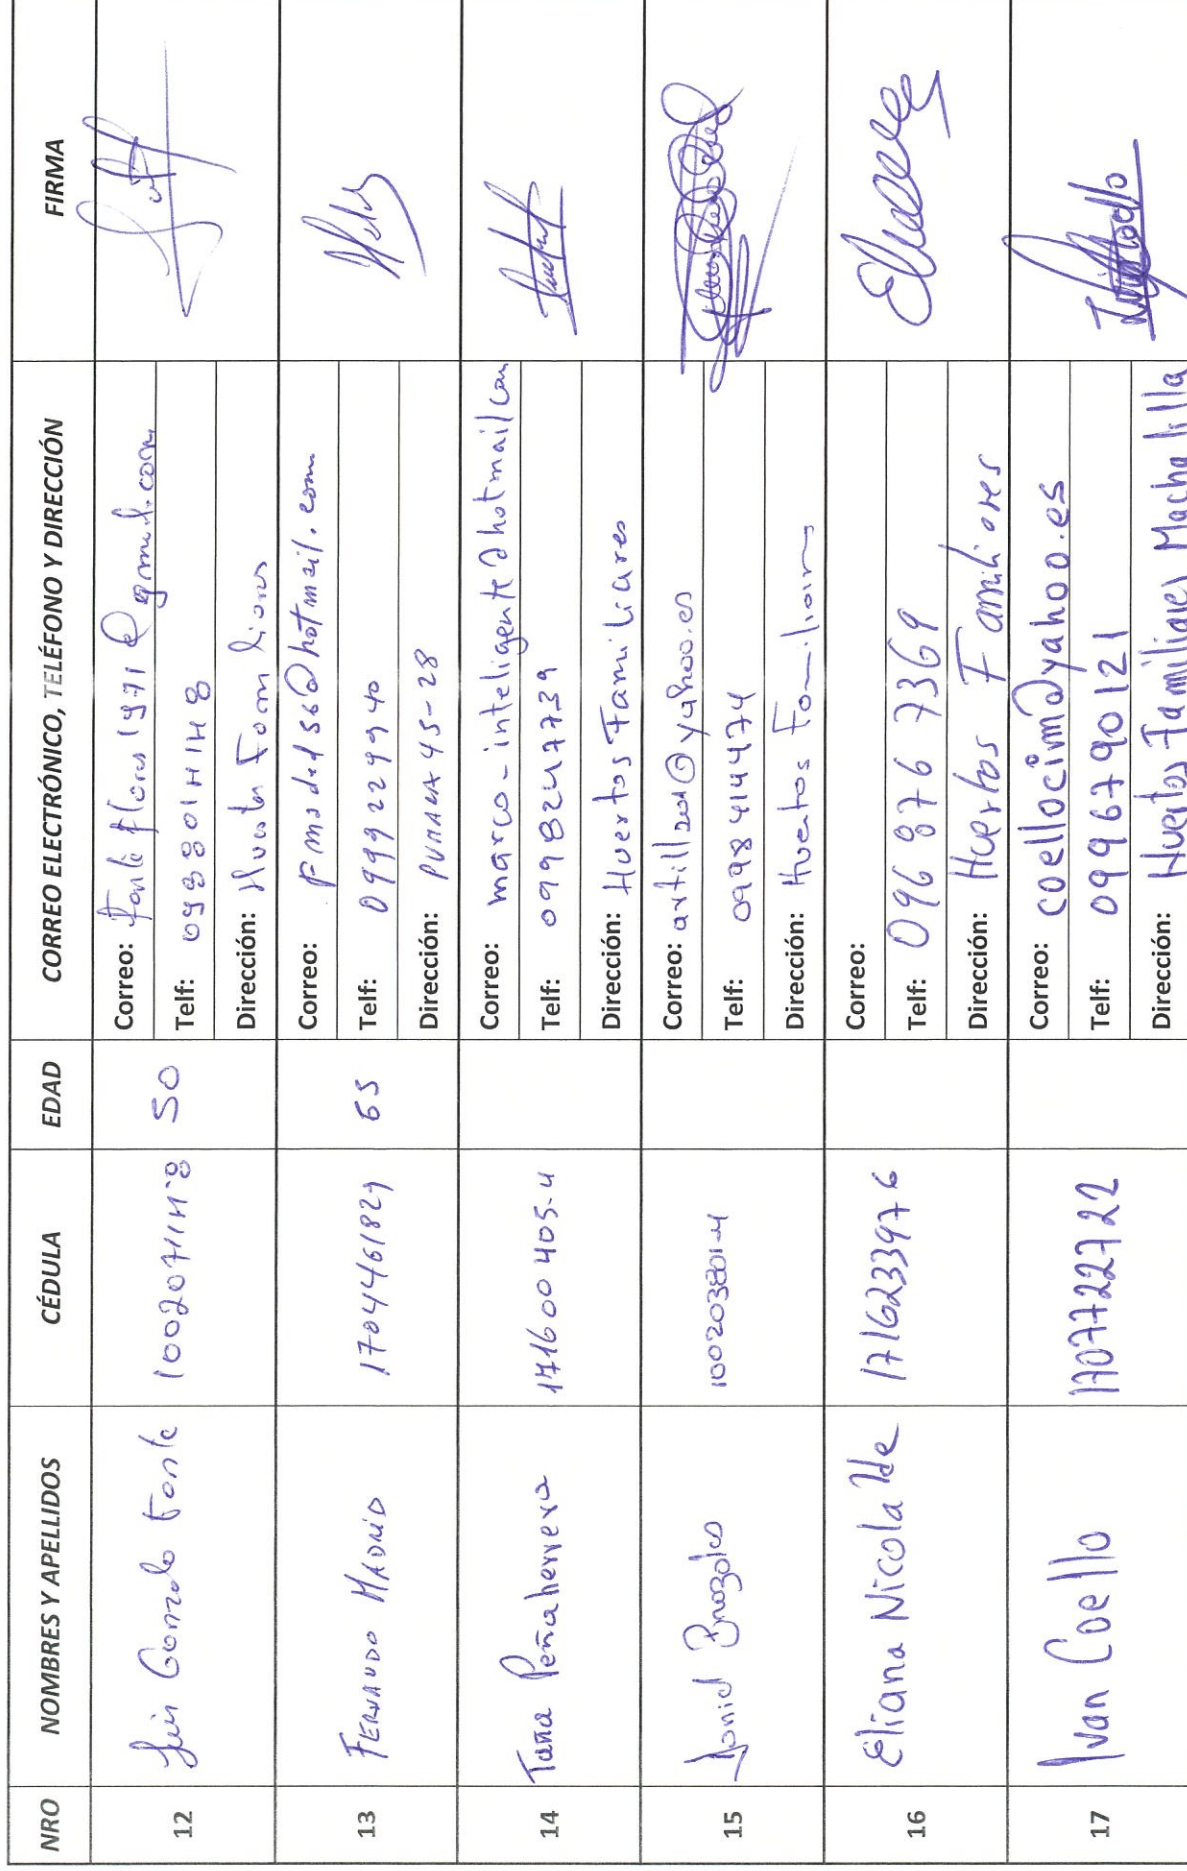 NRO NOMBRES Y APELLIDOS CÉDULA EDAD CORREO ELECTRÓNICO, TELÉFONO Y DIRECCIÓN FIRMA
12 Luis Gonzalo Fonte 50
Correo:
Telf:
Dirección:
13 FERNANDO MADRID 1704461829 65
Correo: Fmoded56@hotmail.com
Telf: 0999229940
Dirección: PUMALA 45-28
14 Tana Peñaherrera 171600405-4
Correo: marco-inteligente@hotmail.com
Telf: 0998247739
Dirección: Huertos Familiares
15 100203801-4
Correo: @yahoo.es
Telf: 0998414474
Dirección: Huertos
16 Eliana Nicolalde 1716233976
Correo:
Telf: 096 876 7369
Dirección: Huertos Familiares
17 Ivan Coello 1707722722
Correo: coellocim@yahoo.es
Telf: 0996790121
Dirección: Huertos Familiares Machalilla